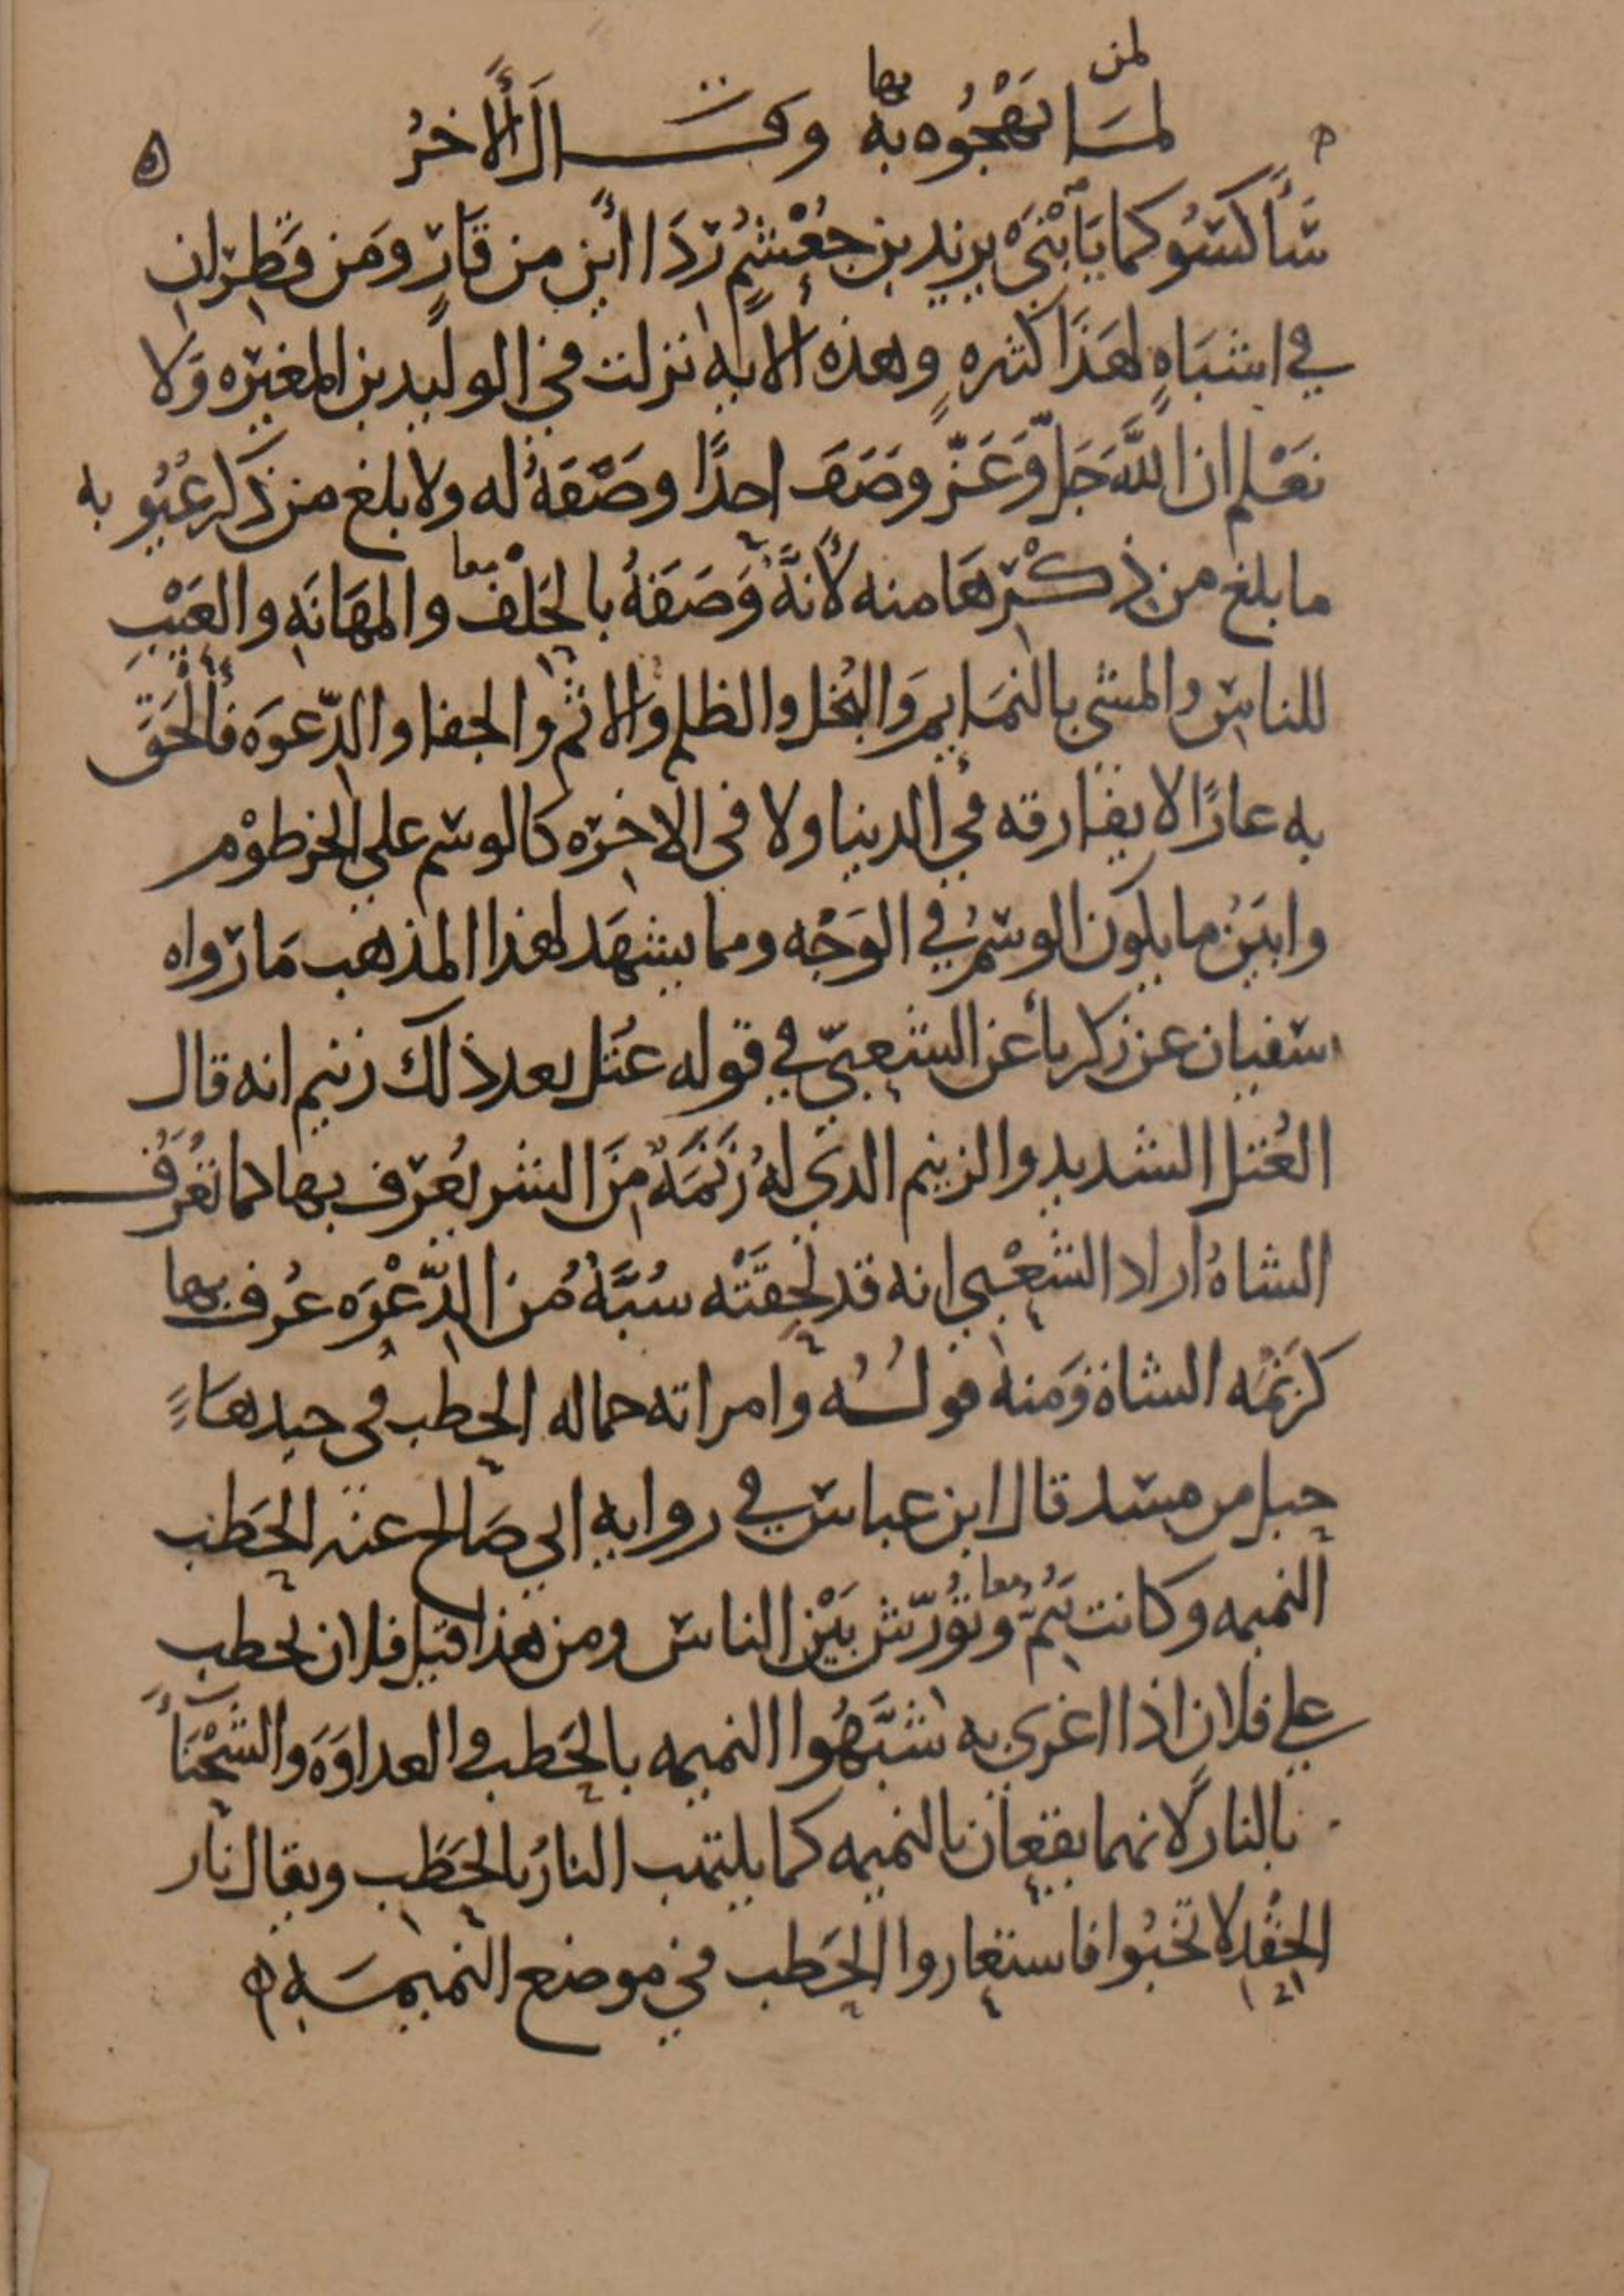 لمن
لما نهجوه به بها وقال الآخر
سأكسوكما يا بني يزيد بن جعشم رداأين من قار ومن قطران
في اشباه لهذا كثيره وهذه الايه نزلت في الوليد بن المغيره ولا
نعلم ان الله جل وعز وصف احدا وصفه له ولا بلغ من ذكر عيوبه
ما بلغ من ذكرها منه لأنه وصفه بالحلف معا والمهانه والعيب
للناس والمشي بالنمايم والبخل والظلم والاثم والجفا والدعوه فألحق
به عارا لا يفارقه في الدنيا ولا في الاخره كالوسم علي الخرطوم
وابين ما يكون الوسم في الوجه ومما يشهد لهذا المذهب ما رواه
سفيان عن زكريا عن الشعبي في قوله عتل بعد ذلك زنيم انه قال
العتل الشديد والزنيم الذي له زنمة من الشر يعرف بها كما تعرف
الشاة اراد الشعبي انه قد لحقته سبة من الدعوه عرف بها
كزنمه الشاة ومنه قوله وامراته حماله الحطب في جيدها
حبل من مسد قال ابن عباس في روايه ابي صالح عنه الحطب
النميمه وكانت تنم معا وتؤرش بين الناس ومن هذا قيل فلان يحطب
علي فلان اذا اغري به شبهوا النميمه بالحطب والعداوة والشحنا
بالنار لانهما يقعان بالنميمه كما يلتهب النار بالحطب ويقال نار
الحقد لا تخبوا فاستعاروا الحطب في موضع النميمه